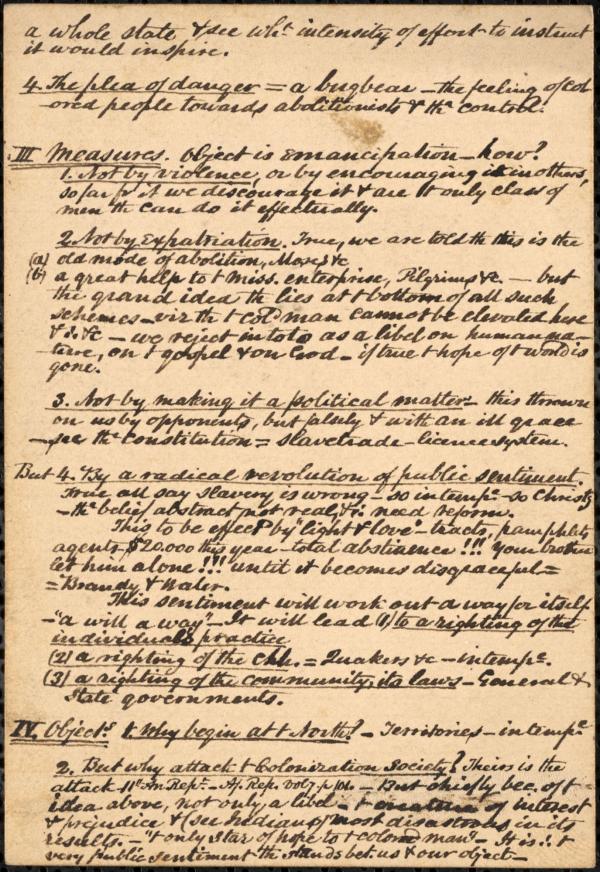 a whole state & see wht intensity of effort to instruct
it would inspire.
4. The plea of danger = a bugbear – the feeling of col
ored people towards abolitionists & thr control.
III Measures. Object is Emancipation – how?
1. Not by violence, or by encouraging it in others,
so far fr it we discourage it & are t only class of
men th can do it effectually.
2. Not by Expatriation. True, we are told th this is the
(a) old mode of abolition, Moses &c
(b) a great help to t miss. enterprise, Pilgrims &c. — but
the grand idea th lies at t bottom of all such
schemes – viz th t cold man cannot be elevated here
&c. &c – we reject in toto as a libel on human na-
ture, on t gospel & on God – if true t hope of t world is
gone.
3. Not by making it a political matter – this thrown
on us by opponents, but falsly & with an ill grace
– see thr constitution = slavetrade – licence system.
But 4. By a radical revolution of public sentiment.
True all say slavery is wrong – so intempe – so Christy
– thr belief abstract not real, & need reform.
This to be effecd by "light & love" – tracts, pamphlets
agents – $20.000 this year – total abstinence!!! Your brother
let him alone!!! until it becomes disgraceful =
= Brandy & Water.
This sentiment will work out a way for itself
– "a will a way" – It will lead (1) to a righting of the
individual's practice
(2) a righting of the chh. = Quakers &c – intempe.
(3) a righting of the community, its laws – General &
State governments.
IV. Objects. 1. Why begin at t North? – Territories – intempe
2. But why attack t Colonization Society? Theirs is the
attack – 11th An. Rept. – Af. Rep. vol 7. p 101. – But chiefly bec. of t
idea above, not only a libel – t creature of interest
& prejudice & (see Indians) most disastrous in its
results. – "t only star of hope to t colored man" – It is t
very public sentiment th stands bet. us & our object –